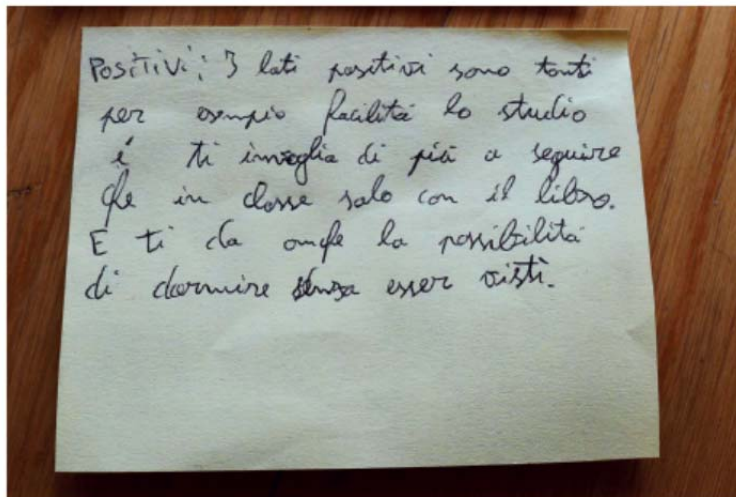 POSITIVI: I lati positivi sono tanti
per esempio facilità lo studio
i ti invoglia di più a seguire
che in classe solo con il libro.
E ti da anche la possibilità
di dormire senza esser visti.